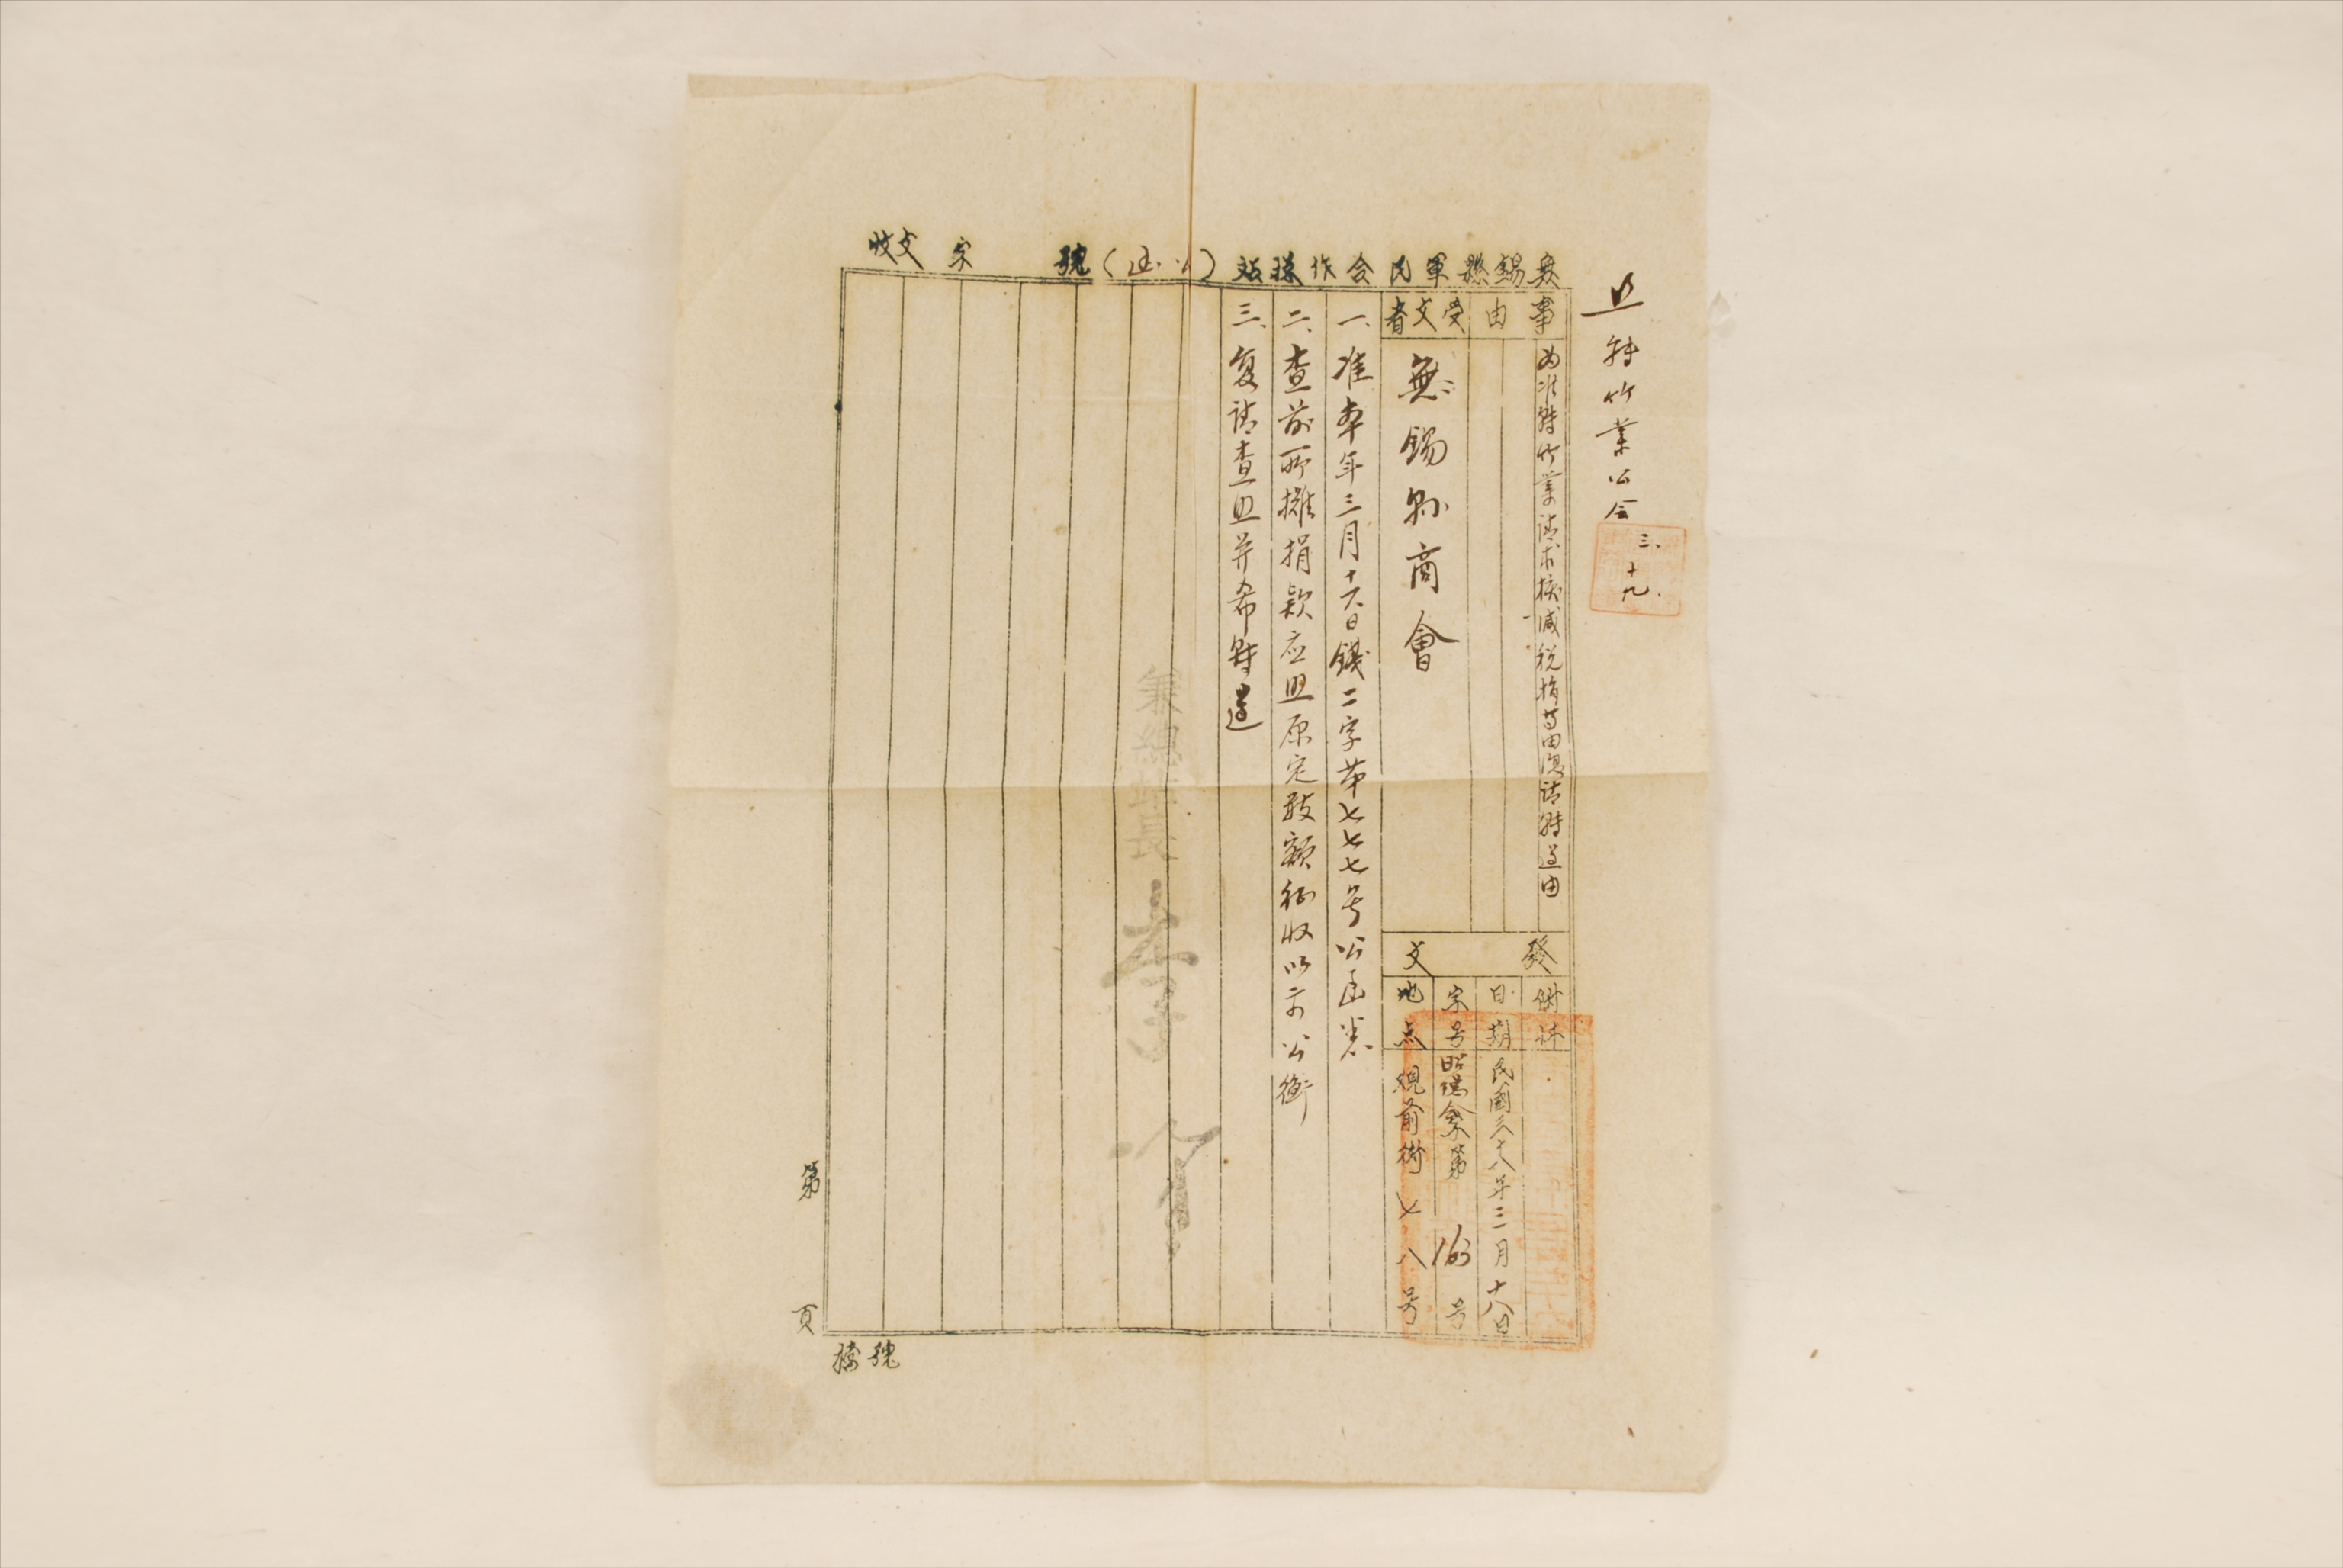 照轉竹業公会
三.十九.
無錫縣軍民合作總站(公函)
收文 字 號
事由
为准轉竹業請求核减税捐等由復請轉遵由
受文者
無錫縣商會
發文
附件
日期 民國三十八年三月十八日
字号 第163号
地点 觀前街七八号
一、准本年三月十六日錢二字第七七七号公函悉
二、查前所攤捐款应照原定數額征收以示公衡
三、复請查照并希轉遵
兼總站長
第 頁
檔號